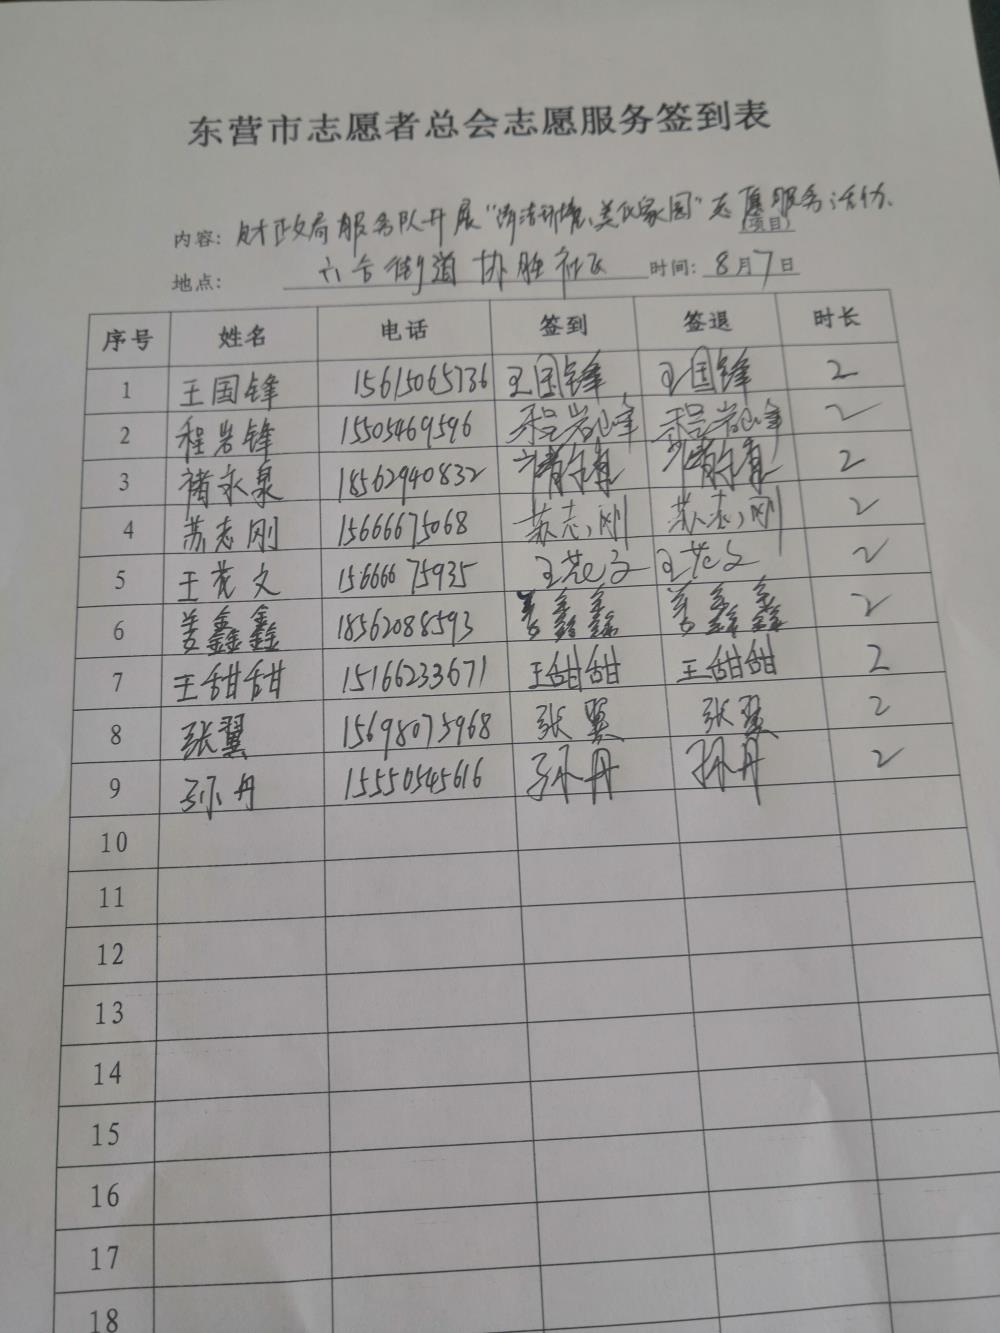 东营市志愿者总会志愿服务签到表
内容：财政局服务队开展"清洁环境、美化家园"志愿服务活动、
(项目)
地点： 六合街道 协胜社区 时间：8月7日
序号 姓名 电话 签到 签退 时长
1 王国锋 15615065736 王国锋 王国锋 2
2 程岩锋 15505469596 程岩峰 程岩峰 2
3 褚永泉 18562940832 2
4 苏志刚 15666675068 苏志刚 苏志刚 2
5 王范文 15666675935 王范文 王范文 2
6 姜鑫鑫 18562088593 姜鑫鑫 姜鑫鑫 2
7 王甜甜 15166233671 王甜甜 王甜甜 2
8 张翼 15698075968 张翼 张翼 2
9 孙丹 15550545616 孙丹 孙丹 2
10
11
12
13
14
15
16
17
18